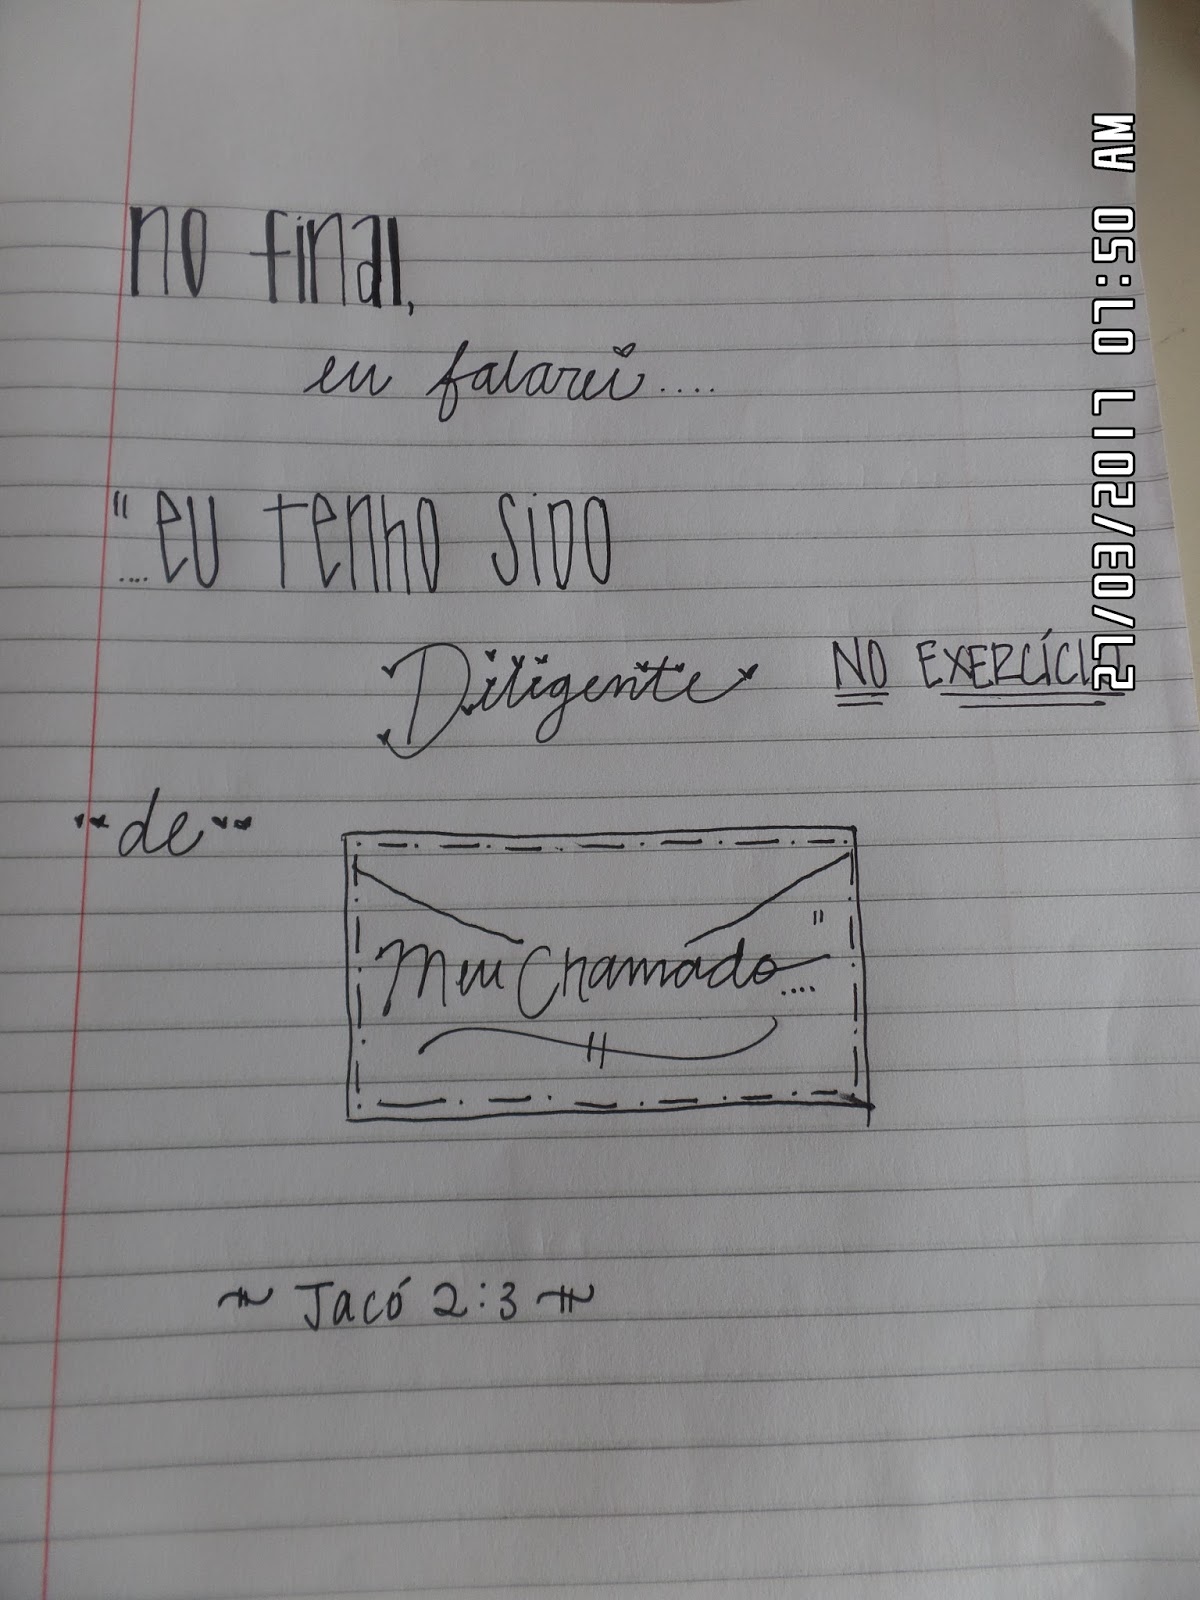 no final,
eu falarei....
"....eu tenho sido
Diligente NO EXERCÍCIO
de
Meu Chamado...."
~ Jacó 2:3 ~
27/03/2017 07:50 AM